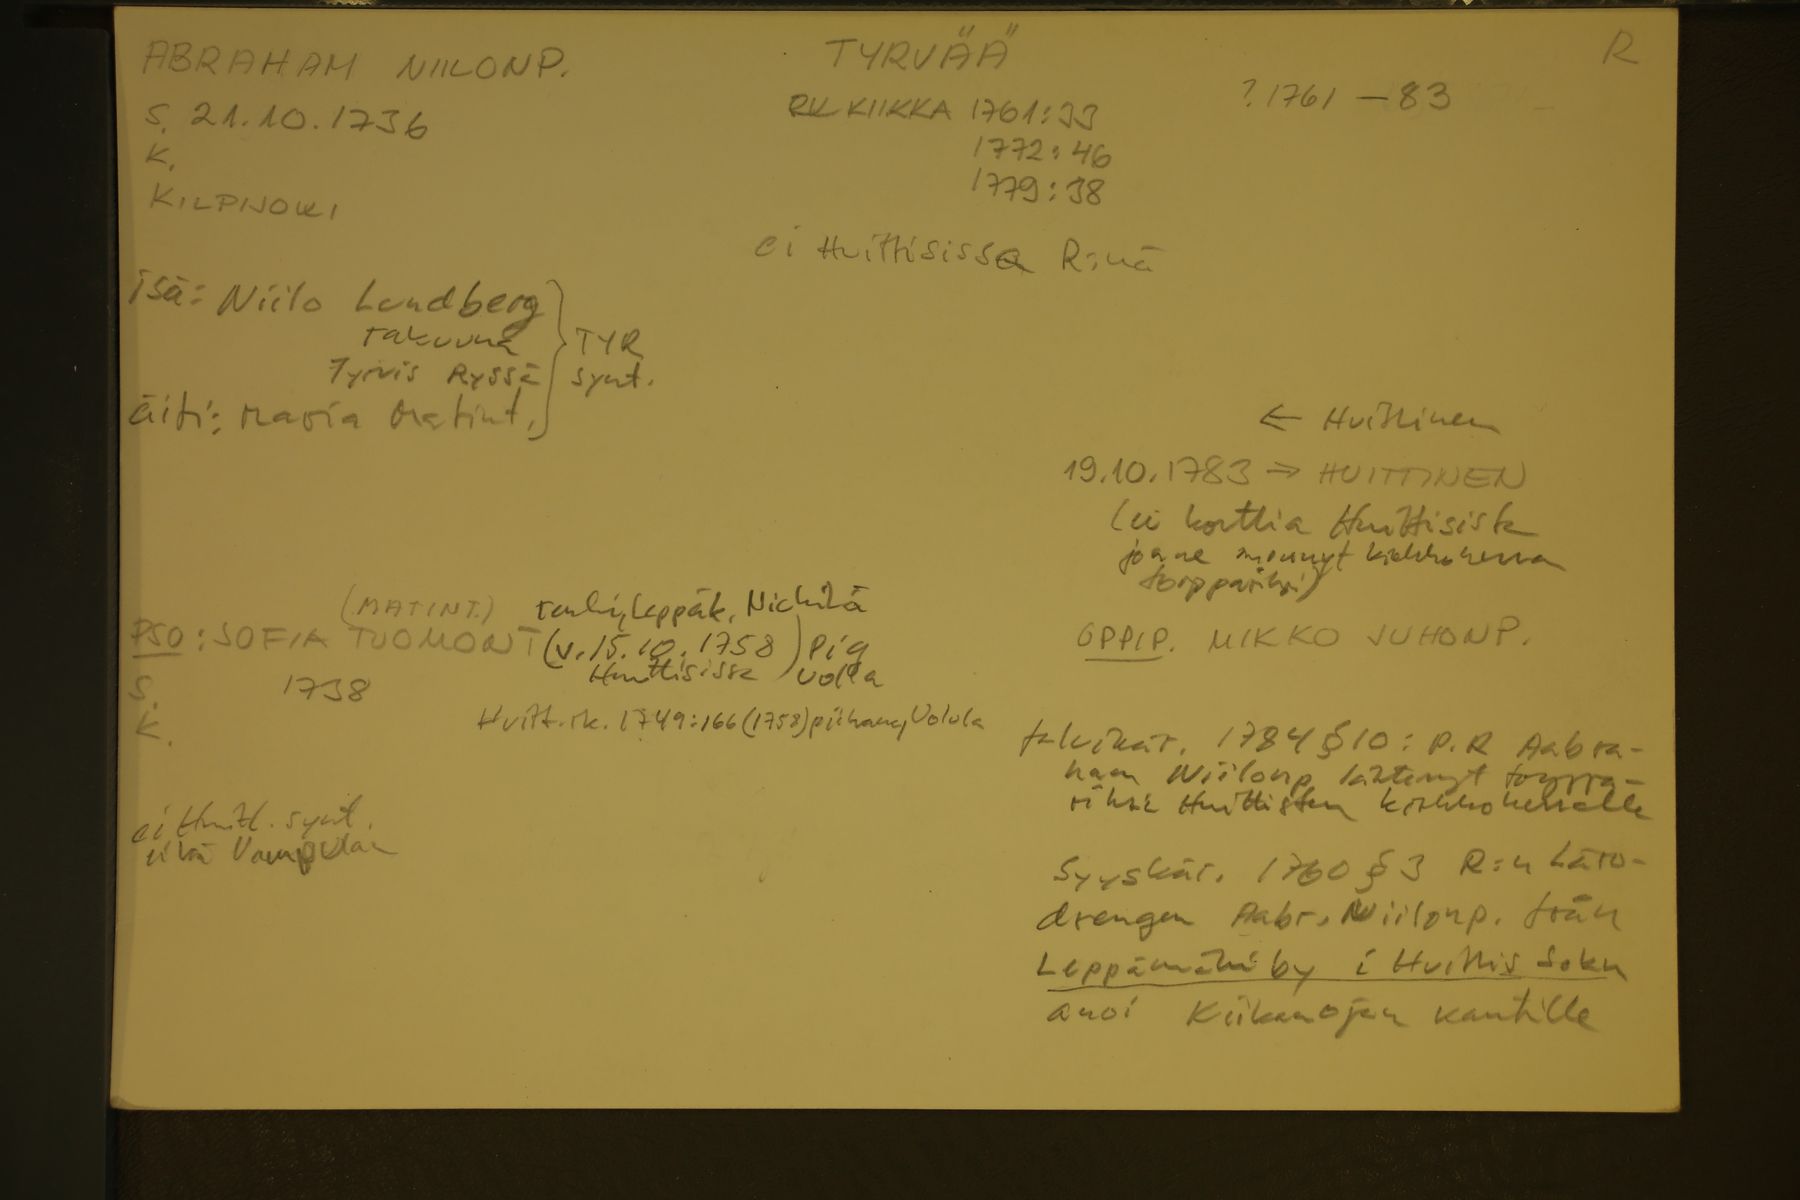 ABRAHAM NIILONP.
TYRVÄÄ
R
S. 21.10.1736
RK KIIKKA 1761:33
? 1761 — 83
K.
1772:46
KILPIJOKI
1779:38
ei Huittisissa R:nä
isä: Niilo Lundberg
rakuuna
TYR
Ryssä
synt.
äiti: Maria Matint.
← Huittinen
19.10.1783 → HUITTINEN
(ei korttia Huittisista
jonne mennyt kirkkoherran
torppariksi)
(MATINT.) renki, Leppäk.
PSO: SOFIA TUOMONT (v. 15.10.1758) piq
Huittisissa
S. 1738
K.
Huitt. rk. 1749:166 (1758)
OPPIP. MIKKO JUHONP.
talvikär. 1784 § 10: p.R Aabra-
ham Niilonp lähtenyt torppa-
riksi Huittisten kirkkoherralle
ei Huitt. synt.
eikä Vampulan
Syyskär. 1760 § 3 R:n Läro-
drengen Aabr. Niilonp. från
Leppämäki by i Huittis Sokn
anoi Kiikanojan kantille